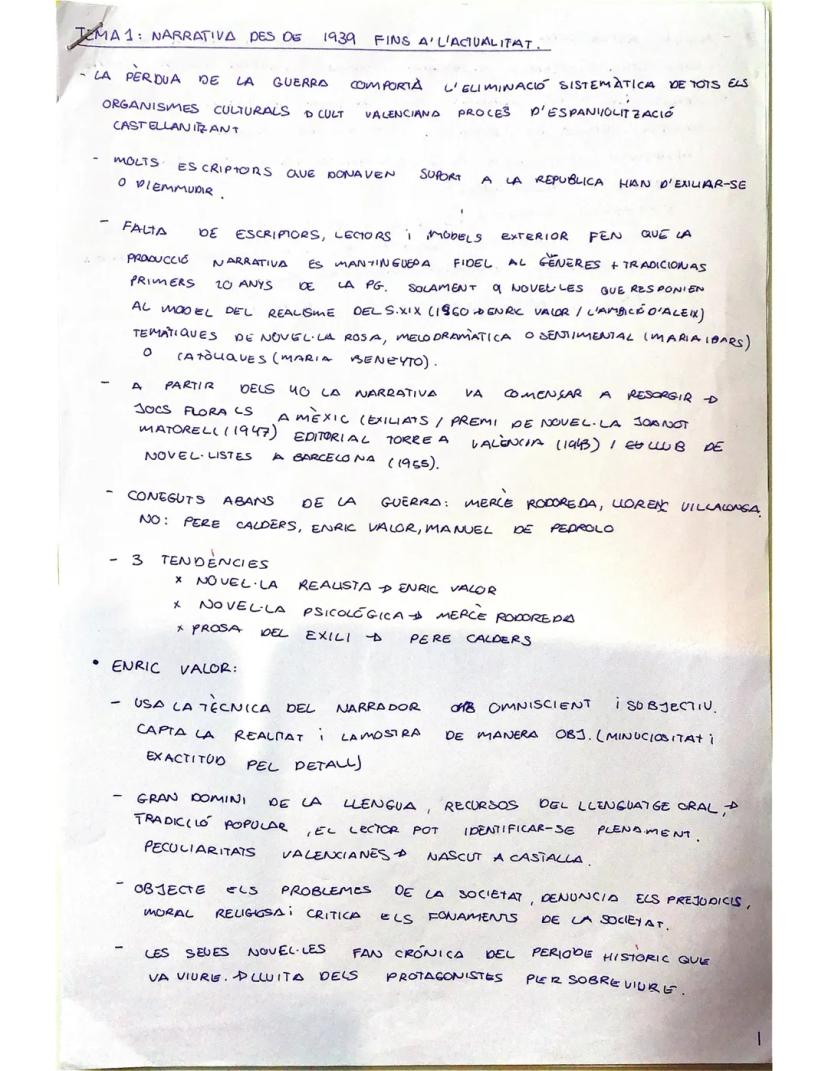 TEMA 1: NARRATIVA DES DE 1939 FINS A'L'ACTUALITAT.
- LA PÈRDUA DE LA GUERRA COMPORTÀ L'ELIMINACIÓ SISTEMÀTICA DE TOTS ELS
ORGANISMES CULTURALS D CULT VALENCIANA PROCÉS D'ESPANYOLITZACIÓ
CASTELLANITZANT
- MOLTS ESCRIPTORS QUE DONAVEN SUPORT A LA REPUBLICA HAN D'EXILIAR-SE
O D'EMMUDIR.
- FALTA DE ESCRIPTORS, LECTORS i MODELS EXTERIOR FEN QUE LA
PRODUCCIÓ NARRATIVA ES MANTINGUERA FIDEL AL GÈNERES + TRADICIONAS
PRIMERS 20 ANYS DE LA PG. SOLAMENT 9 NOVEL·LES QUE RESPONIEN
AL MODEL DEL REALISME DEL S.XIX (1960 → ENRIC VALOR / L'AMBICIÓ D'ALEIX)
TEMÀTIQUES DE NOVEL·LA ROSA, MELODRAMÀTICA O SENTIMENTAL (MARIA IBARS)
O CATÒLIQUES (MARIA BENEYTO).
- A PARTIR DELS 40 LA NARRATIVA VA COMENÇAR A RESORGIR →
JOCS FLORALS A MÈXIC (EXILIATS / PREMI DE NOVEL·LA JOANOT
MATORELL (1947) EDITORIAL TORRE A VALÈNCIA (1943) / CLUB DE
NOVEL·LISTES A BARCELONA (1955).
- CONEGUTS ABANS DE LA GUERRA: MERCÈ RODOREDA, LLORENÇ VILLALONGA.
NO: PERE CALDERS, ENRIC VALOR, MANUEL DE PEDROLO
- 3 TENDÈNCIES
x NOVEL·LA REALISTA → ENRIC VALOR
x NOVEL·LA PSICOLÓGICA → MERCÈ RODOREDA
x PROSA DEL EXILI → PERE CALDERS
• ENRIC VALOR:
- USA LA TÈCNICA DEL NARRADOR OMNISCIENT i SOBJECTIU.
CAPTA LA REALITAT i LA MOSTRA DE MANERA OBJ. (MINUCIOSITAT i
EXACTITUD PEL DETALL)
- GRAN DOMINI DE LA LLENGUA, RECURSOS DEL LLENGUATGE ORAL, →
TRADICCIÓ POPULAR, EL LECTOR POT IDENTIFICAR-SE PLENAMENT.
PECULIARITATS VALENCIANES → NASCUT A CASTALLA.
- OBJECTE ELS PROBLEMES DE LA SOCIETAT, DENUNCIA ELS PREJUDICIS,
MORAL RELIGIOSA i CRITICA ELS FONAMENTS DE LA SOCIETAT.
- LES SEUES NOVEL·LES FAN CRÓNICA DEL PERIODE HISTÒRIC QUE
VA VIURE. → LLUITA DELS PROTAGONISTES PER SOBREVIURE.
1